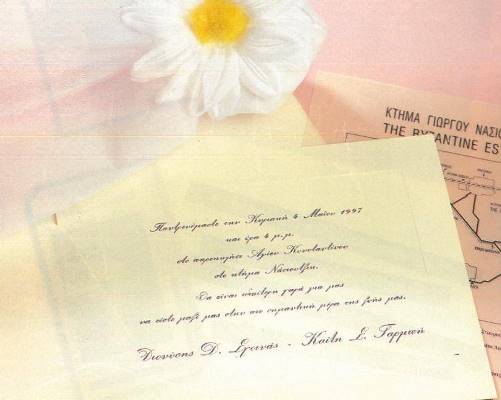 ΚΤΗΜΑ ΓΙΩΡΓΟΥ ΝΑΣΙΟ
THE BYZANTINE ES
Παντρευόμαστε την Κυριακή 4 Μαΐου 1997
και ώρα 4 μ.μ.
στο παρεκκλήσι Αγίου Κωνσταντίνου
στο κτήμα Νάσιουτζικ.
Θα είναι ιδιαίτερη χαρά για μας
να είστε μαζί μας στην πιο σημαντική μέρα της ζωής μας.
Διονύσης Δ. - Καίτη Σ.